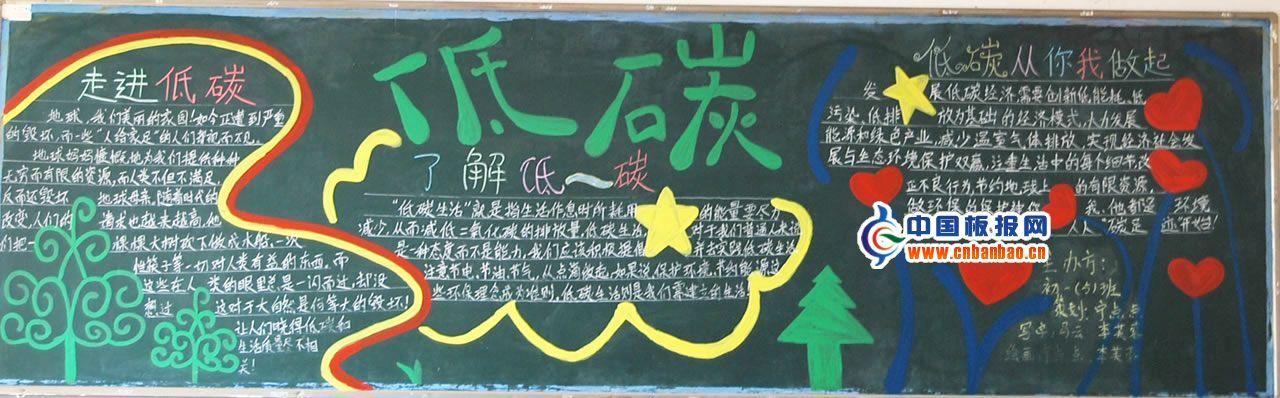 走进低碳
地球，我们美丽的家园！如今正遭到严重
的毁坏，而一些“人给家足”的人们享视而不见。
地球妈妈慷慨地为我们提供种种
无穷而有限的资源，而人类不但不满足，
反而还毁坏 地球母亲，随着时代的
改变，人们的 请求也越来越高，他
们把一 棵棵大树砍下做成水船、一次
性筷子等一切对人类有益的东西，而
这些在人类的眼里总是一闪而过，却没
想过 这对于大自然是何等大的毁坏！
让人们晓得低碳和
生活质量尽不相
关！
低碳
了解低～碳
“低碳生活”就是指生活作息时所耗用 的能量要尽力
减少，从而减低二氧化碳的排放量。低碳生活 对于我们普通人来说
是一种态度而不是能力，我们应该积极提倡 并去实践低碳生活
注意节电、节油、节气，从点滴做起，如果说，保护环境、节约能源这
些环保理念成为准则，低碳生活则是我们需建立的生活！
低碳从你我做起
发 展低碳经济需要创新低能耗、低
污染、低排 放为基础的经济模式，大力发展
能源和绿色产业，减少温室气体排放，实现经济社会发
展与生态环境保护双赢，注重生活中的每个细节，改
正不良行为节约地球上 的有限资源，
做环保的保护
我、他都是 环境
人人 碳足
中国板报网
www.cnbanbao.cn
主办方：
初一（5）班
策划：宁点点